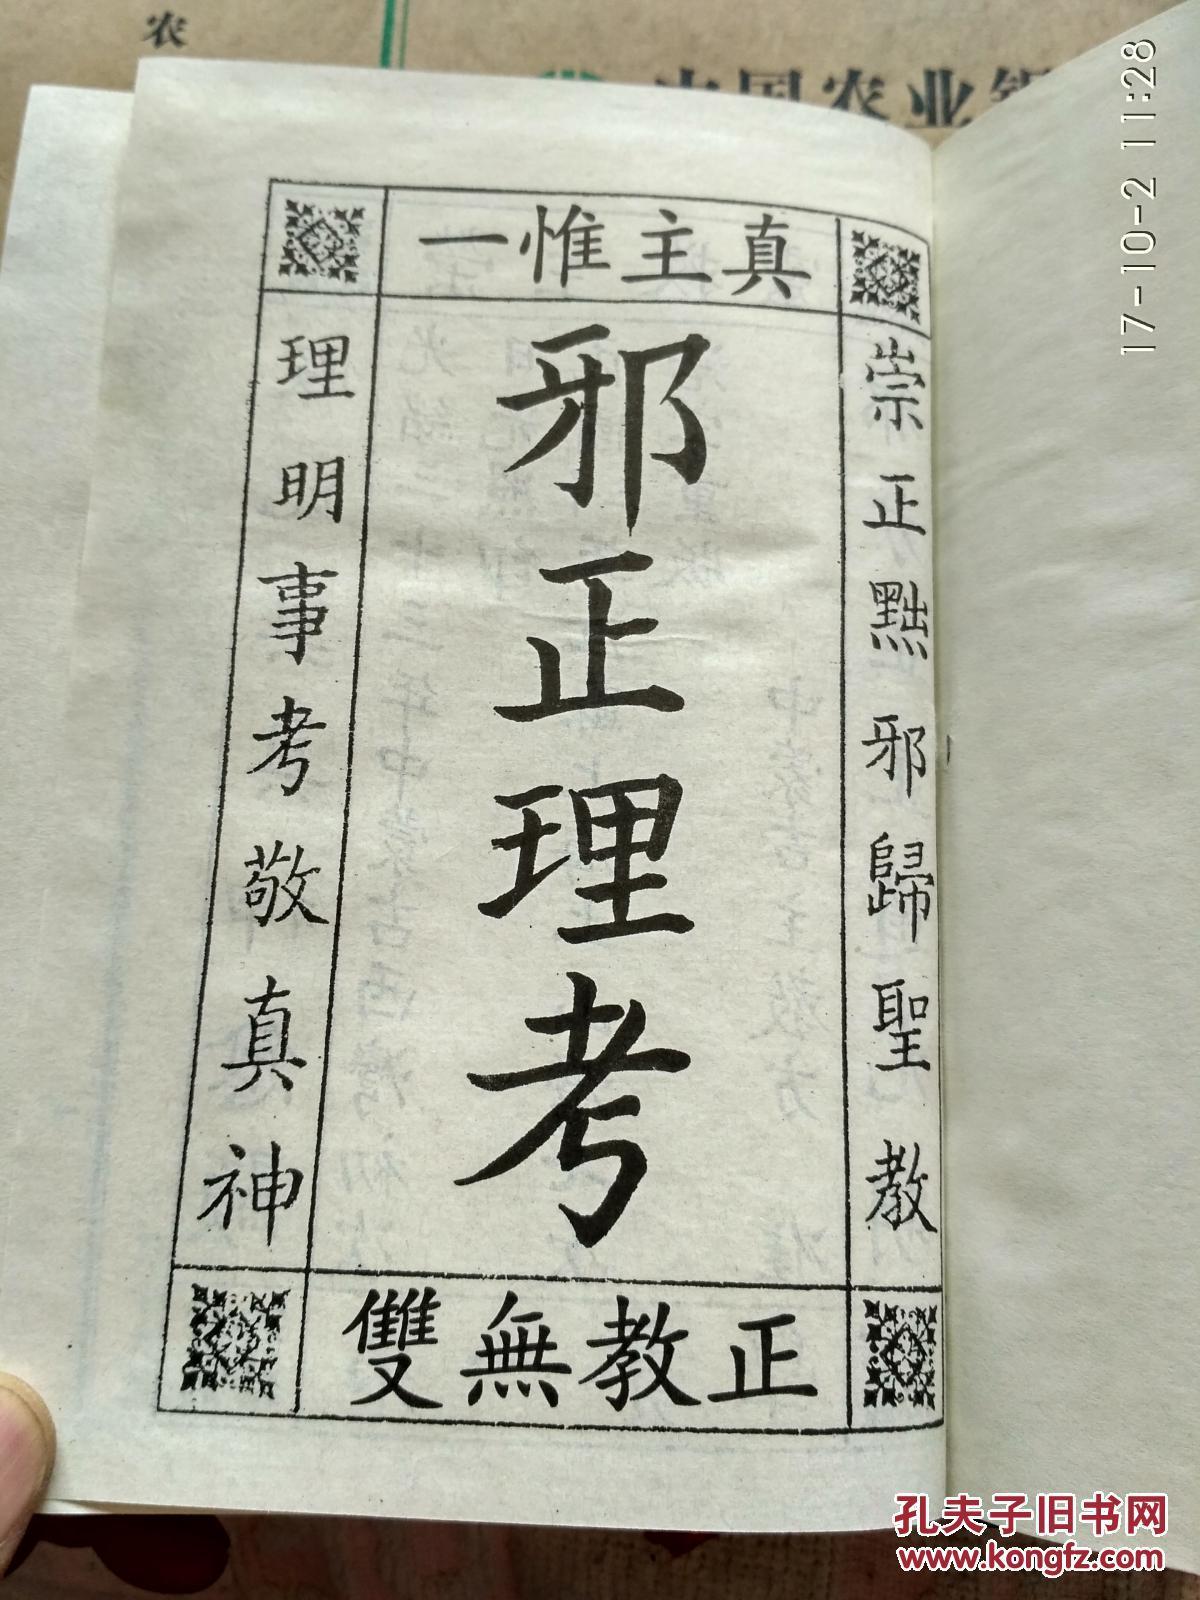 农
中国农业银
17-10-2 11:28
真主惟一
崇正黜邪歸聖教
邪正理考
理明事考敬真神
正教無雙
孔夫子旧书网
www.kongfz.com